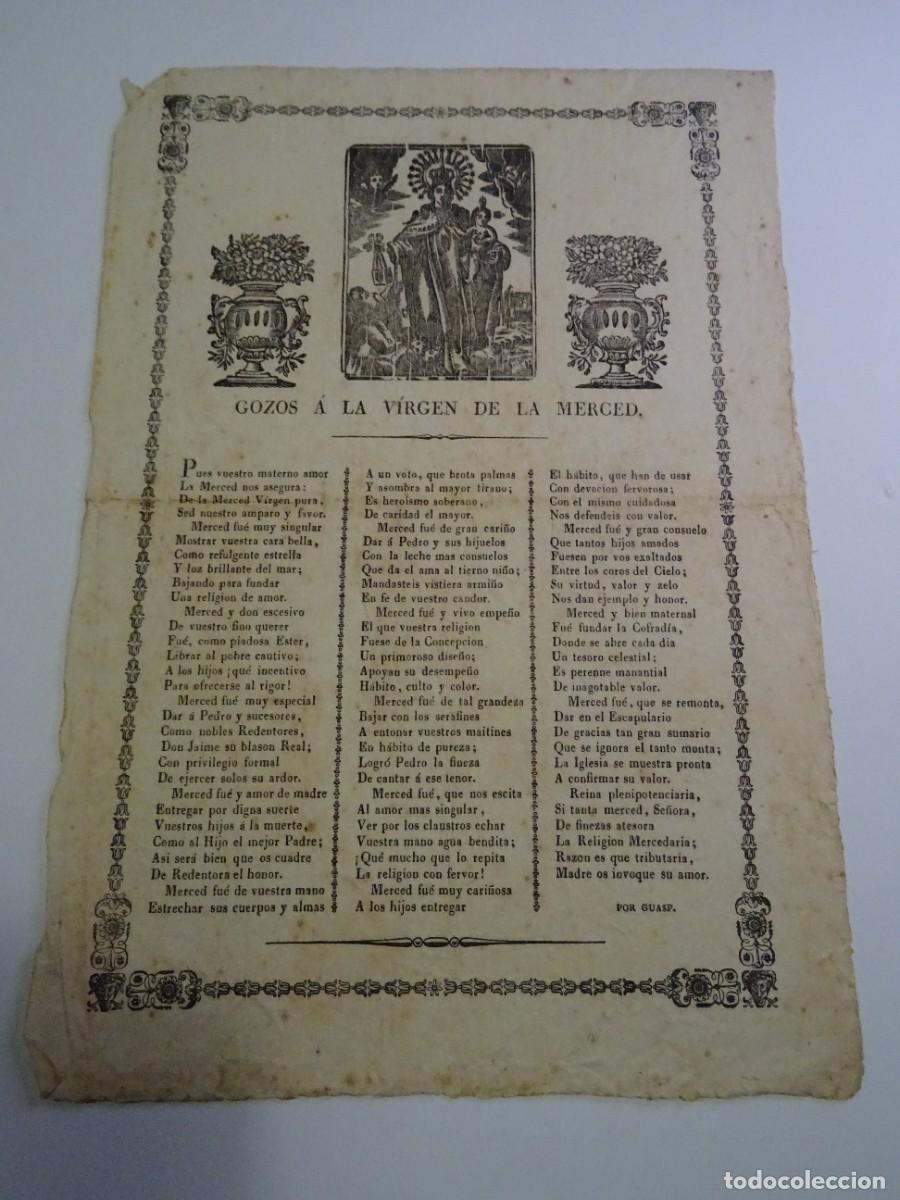 GOZOS Á LA VÍRGEN DE LA MERCED.
Pues vuestro materno amor
La Merced nos asegura:
De la Merced Vírgen pura,
Sed nuestro amparo y favor.
Merced fué muy singular
Mostrar vuestra cara bella,
Como refulgente estrella
Y loz brillante del mar;
Bajando para fundar
Una religion de amor.
Merced y don escesivo
De vuestro fino querer
Fué, como piadosa Ester,
Librar al pobre cautivo;
A los hijos ¡qué incentivo
Para ofrecerse al rigor!
Merced fué muy especial
Dar á Pedro y sucesores,
Como nobles Redentores,
Don Jaime su blason Real;
Con privilegio formal
De ejercer solos su ardor.
Merced fué y amor de madre
Entregar por digna suerte
Vuestros hijos á la muerte,
Como al Hijo el mejor Padre;
Asi será bien que os cuadre
De Redentora el honor.
Merced fué de vuestra mano
Estrechar sus cuerpos y almas
A un voto, que brota palmas
Y asombra al mayor tirano;
Es heroismo soberano,
De caridad el mayor.
Merced fué de gran cariño
Dar á Pedro y sus hijuelos
Con la leche mas consuelos
Que da el ama al tierno niño;
Mandasteis vistiera armiño
En fe de vuestro candor.
Merced fué y vivo empeño
El que vuestra religion
Fuese de la Concepcion
Un primoroso diseño;
Apoyan su desempeño
Hábito, culto y color.
Merced fué de tal grandeza
Bajar con los serafines
A entonar vuestros maitines
En hábito de pureza;
Logró Pedro la fineza
De cantar á ese tenor.
Merced fué, que nos escita
Al amor mas singular,
Ver por los claustros echar
Vuestra mano agua bendita;
¡Qué mucho que lo repita
La religion con fervor!
Merced fué muy cariñosa
A los hijos entregar
El hábito, que han de usar
Con devocion fervorosa;
Con el mismo cuidadosa
Nos defendeis con valor.
Merced fué y gran consuelo
Que tantos hijos amados
Fuesen por vos exaltados
Entre los coros del Cielo;
Su virtud, valor y zelo
Nos dan ejemplo y honor.
Merced y bien maternal
Fué fundar la Cofradía,
Donde se abre cada dia
Un tesoro celestial;
Es perenne manantial
De inagotable valor.
Merced fué, que se remonta,
Dar en el Escapulario
De gracias tan gran sumario
Que se ignora el tanto monta;
La Iglesia se muestra pronta
A confirmar su valor.
Reina plenipotenciaria,
Si tanta merced, Señora,
De finezas atesora
La Religion Mercedaria;
Razon es que tributaria,
Madre os invoque su amor.
POR GUASP.
todocoleccion
todocoleccion.net